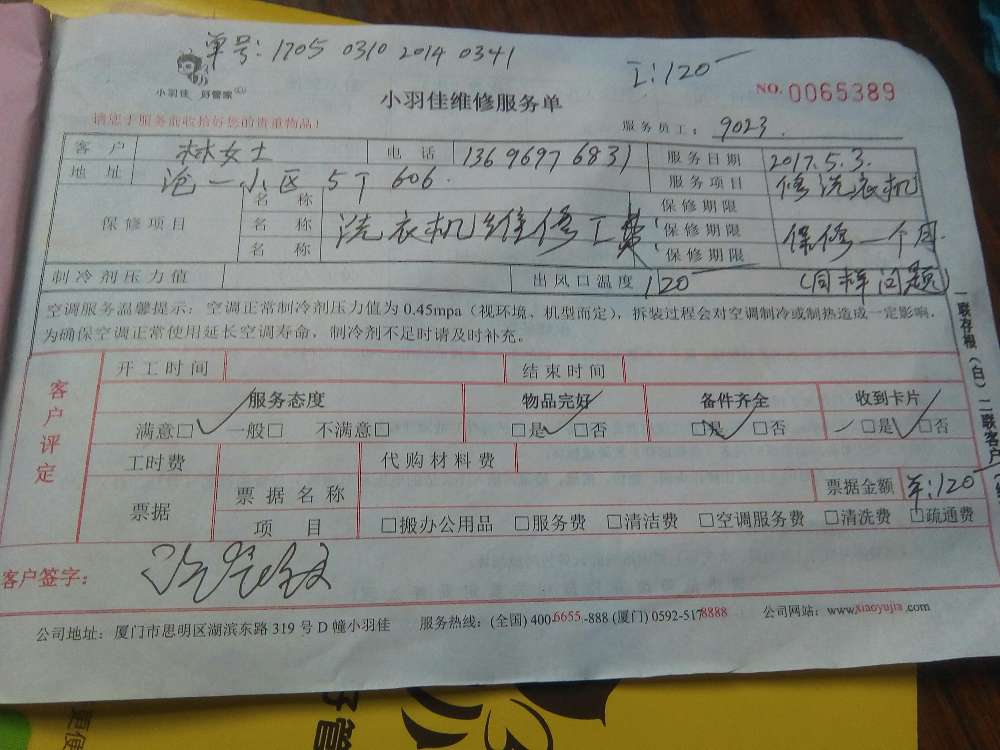 单号: 1705 0310 2014 0341
工:120
小羽佳 好管家
小羽佳维修服务单
NO. 0065389
请您于服务前收拾好您的贵重物品!
服务员工: 9023.
客户 林女士 电话 13696976831 服务日期 2017.5.3.
地址 沧一小区 5丁 606. 服务项目 修洗衣机
保修项目 名称 保修期限
名称 洗衣机维修工费: 保修期限 保修一个月.
名称 保修期限
制冷剂压力值 出风口温度 120 (同样问题)
空调服务温馨提示: 空调正常制冷剂压力值为 0.45mpa (视环境、机型而定), 拆装过程会对空调制冷或制热造成一定影响,
为确保空调正常使用延长空调寿命, 制冷剂不足时请及时补充。
一联存根(白) 二联客户
客户评定
开工时间 结束时间
服务态度 物品完好 备件齐全 收到卡片
满意□ 一般□ 不满意□ □是 □否 □是 □否 □是 □否
工时费 代购材料费
票据 票据名称 票据金额 ¥:120
项目 □搬办公用品 □服务费 □清洁费 □空调服务费 □清洗费 □疏通费
客户签字:
公司地址: 厦门市思明区湖滨东路 319 号 D 幢小羽佳 服务热线: (全国) 400-6655-888 (厦门) 0592-5178888 公司网站: www.xiaoyujia.com